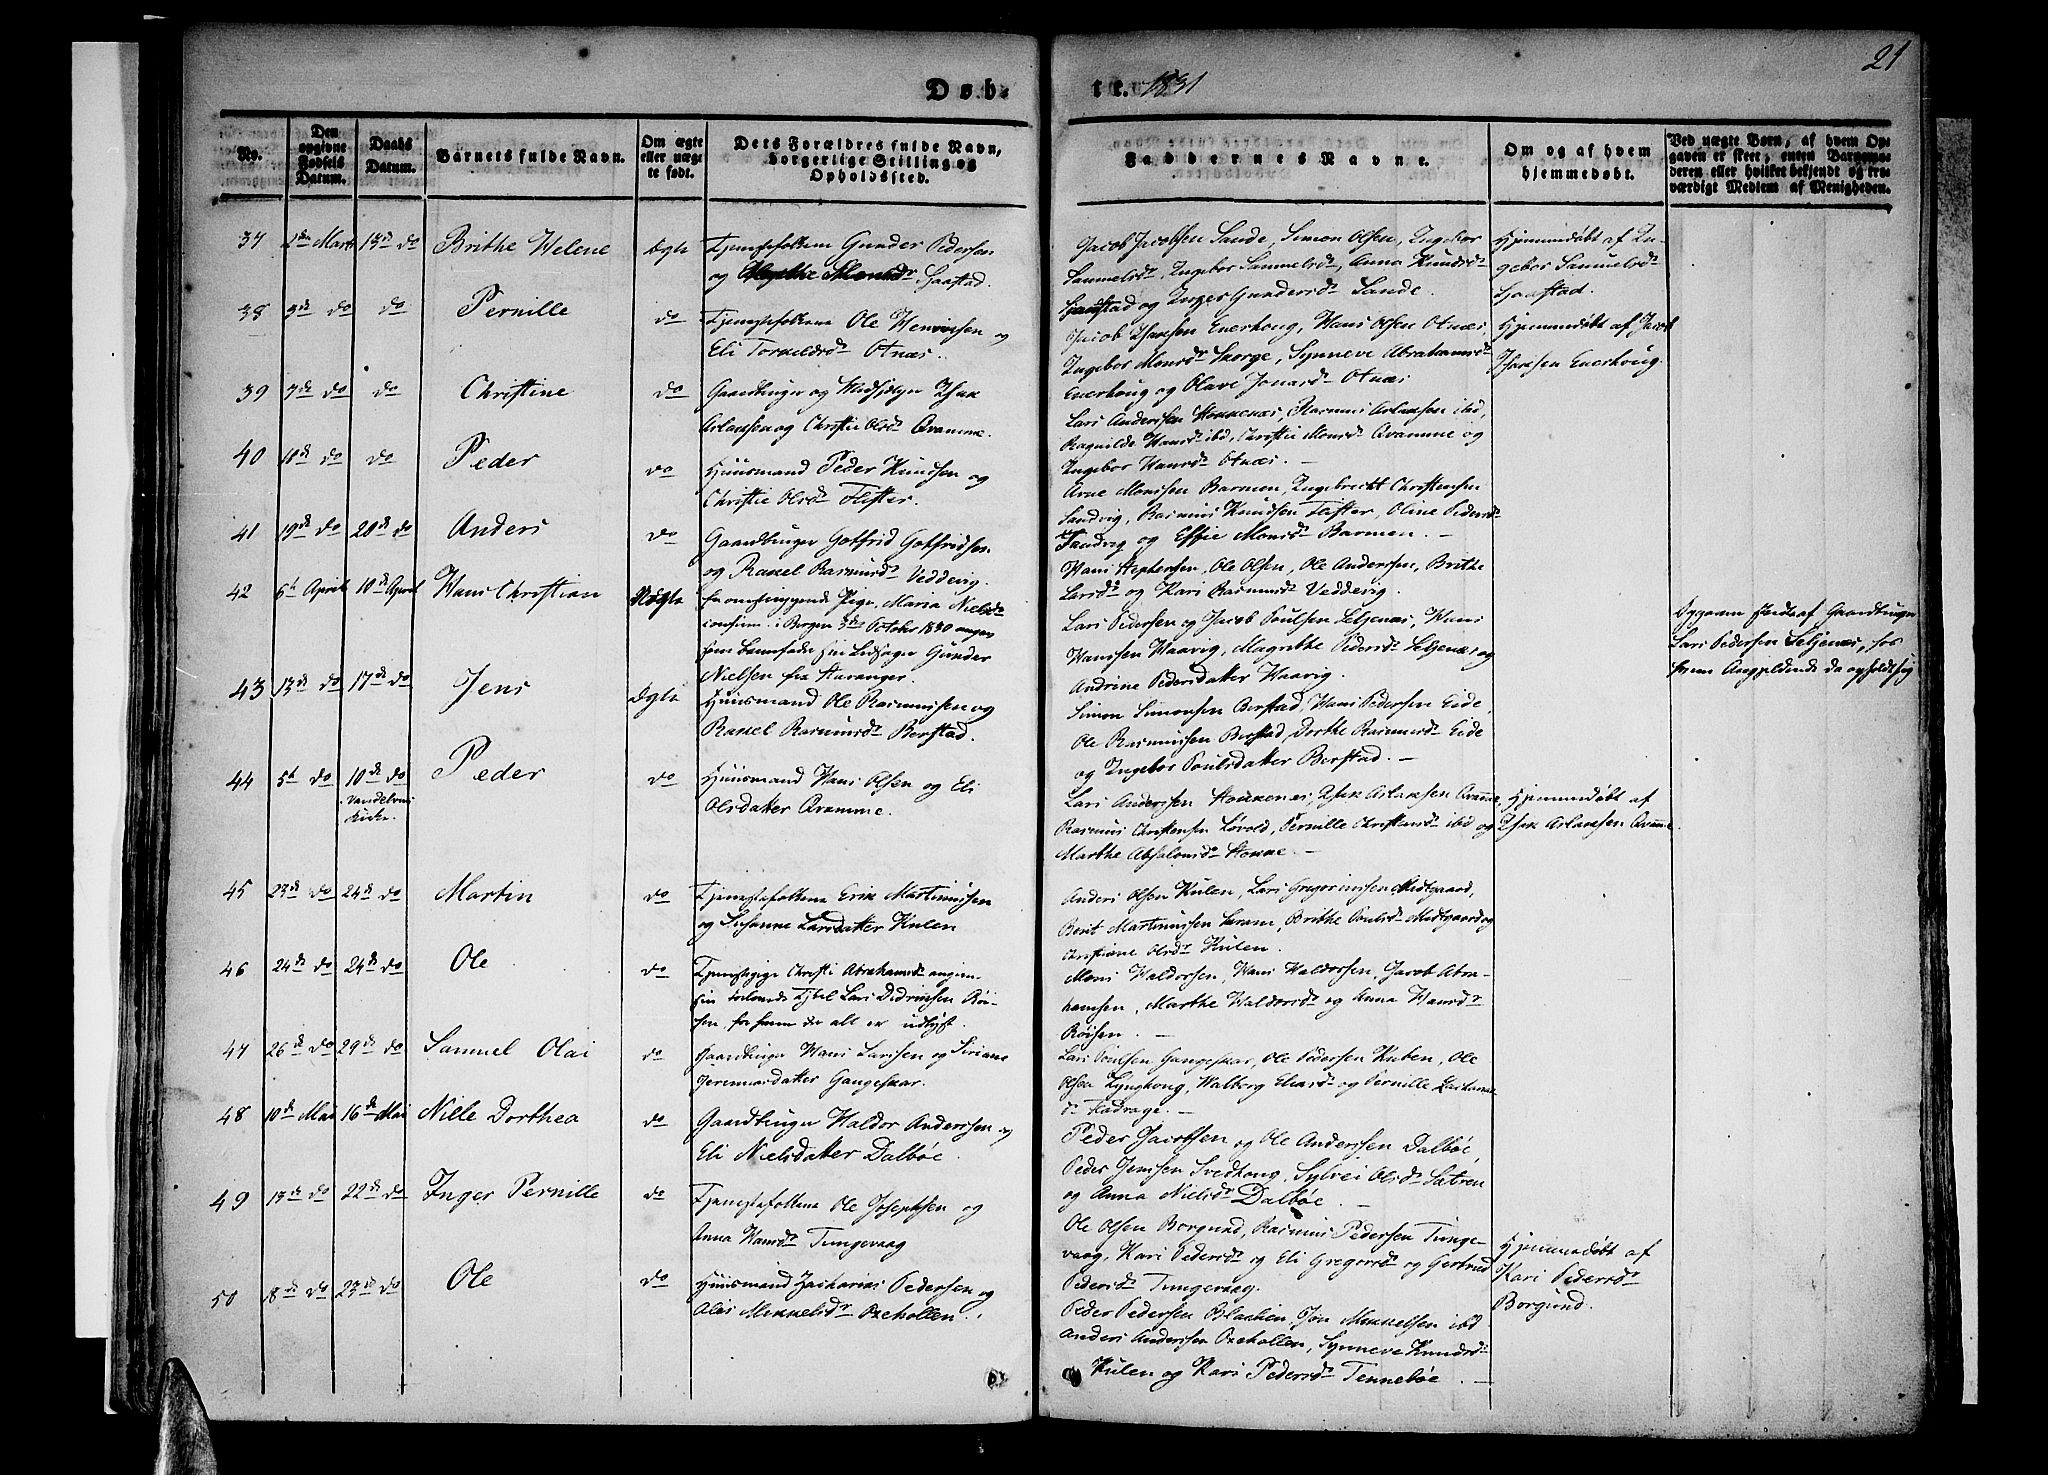 21
Døb- te. 1831
No.
Den opgivne Fødsels Datum.
Daabs Datum.
Barnets fulde Navn.
Om ægte eller uægte født.
Dets Forældres fulde Navn, borgerlige Stilling og Opholdssted.
Faddernes Navne.
Om og af hvem hjemmedøbt.
Ved uægte Børn, af hvem Opgaven er skeet, enten Barnemoderen eller hvilket bekjendt og troværdigt Medlem af Menigheden.
37 Marts 13de do Brithe Helene ægte Tjenestefolkene Gunder Pedersen
og
Jacob Jacobsen Sande, Simon Olsen, Ingebor
Samuelsdr, Ingebor Samuelsdr, Anna Knudsdr
og Inger Gundersdr Sande.
Hjemmedøbt af In-
gebor Samuelsdr
38 3de do do Pernille do Tjenestefolkene Ole og
Eli Otnæs.
Jacob Isaksen Enerhoug, Hans Olsen Otnæs,
Ingebor Monsdr Skorge, Synneve Abrahamsdr
Enerhoug og Olave Jonasdr Otnæs
Hjemmedøbt af Jacob
Isaksen Enerhoug.
39 7de do do Christine do Gaardbruger og Isak
Aslaksen og Christie Olsdr Qvamme.
Lars Andersen Rasmus Aslaksen ibd,
Ragnilde Hansdr ibd, Christie Monsdr Qvamme og
Ingebor Hansdr Otnæs. —
40 18de do do Peder do Huusmand Peder Knudsen og
Christie Olsdr Flister.
Arne Monssen Barmen, Ingebrecht Christensen
Sandvig, Rasmus Knudsen Flister, Oline Pedersdr
Sandvig og Effie Monsdr Barmen. —
41 19de do 20de do Anders do Gaardbruger Gotfrid Gotfridsen
og Rakel Rasmusdr Veddevig.
Hans Stephensen, Ole Olsen, Ole Andersen, Brithe
Larsdr og Kari Rasmusdr Veddevig.
42 6te April 10de April Hans Christian Uægte En omstrippende Pige, Maria Nielsdr
i Bergen 3de October 1830 angav
som Barnefader sin Ledsager Gunder
Nielsen fra Stavanger.
Lars Pedersen og Jacob Poulsen Seljenæs, Hans
Hanssen Haavig, Magrethe Pedersdr Seljenæs og
Andrine Pedersdatter Haavig.
Opgaven skeet af Gaardbruger
Lars Pedersen Seljenæs, hos
hvem Angjeldende da opholdt sig
43 13de do 17de do Jens ægte Huusmand Ole Rasmussen og
Rakel Rasmusdr Berstad.
Simon Simonsen Berstad, Hans Pedersen Eide,
Ole Rasmussen Berstad, Dorthe Rasmusdr Eide
og Ingebor Poulsdatter Berstad. —
44 5te do 10de do
Vandelvens
Kirke.
Peder do Huusmand Hans Olsen og Eli
Olsdatter Qvamme.
Lars Andersen Isak Aslaksen Qvamme,
Rasmus Christensen Løvold, Pernille Christensdr ibd og
Marthe Absalonsdr —
Hjemmedøbt af
Isak Aslaksen Qvamme.
45 23de do 24de do Martin do Tjenestefolkene Erik Martinussen
og Susanne Larsdatter Kulen
Anders Olsen Kulen, Lars Gregoriussen Midtgaard,
Berit Martinussen Brithe Poulsdr Midtgaard og
Christiane Olsdr Kulen.
46 24de do 24de do Ole do Tjenestepige Christi Abrahamsdr angiver
sin Lars Didriksen Røi-
sen, for hvem der alt er udlyst.
Mons Haldorsen, Hans Haldorsen, Jacob Abra-
hamsen, Marthe Haldorsdr og Anna Hansdr
Røisen. —
47 26de do 29de do Samuel Olai do Gaardbruger Hans Larssen og Siriane
Jeremiasdatter Gangeskar.
Lars Poulsen Gangeskar, Ole Pedersen Kuben, Ole
Olsen Lynghoug, Walborg Eliasdr og Pernille Zacharias-
dr —
48 10de Mai 16de Mai Nille Dorthea do Gaardbruger Haldor Anderssen og
Eli Nielsdatter Dalbøe.
Peder Jacobsen og Ole Anderssen Dalbøe,
Peder Jenssen Svedhoug, Sylvei Olsdr Sætren
og Anna Nielsdr Dalbøe. —
49 13de do 22de do Inger Pernille do Tjenestefolkene Ole Josephsen og
Anna Hansdr Tungevaag
Ole Olsen Borgund, Rasmus Pedersen Tunge-
vaag, Kari Pedersdr og Eli Gregorsdr og Gertrud
Pedersdr Tungevaag.
Hjemmedøbt af
Kari Pedersdr
Borgund.
50 18de do 23de do Ole do Huusmand Zacharias Pedersen og
Mikkelsdr Oxehollen.
Peder Pedersen Jon Mikkelsen ibd
Anders Anderssen Oxehollen, Synneve Knudsdr
Kulen og Kari Pedersdr Tennebøe. —